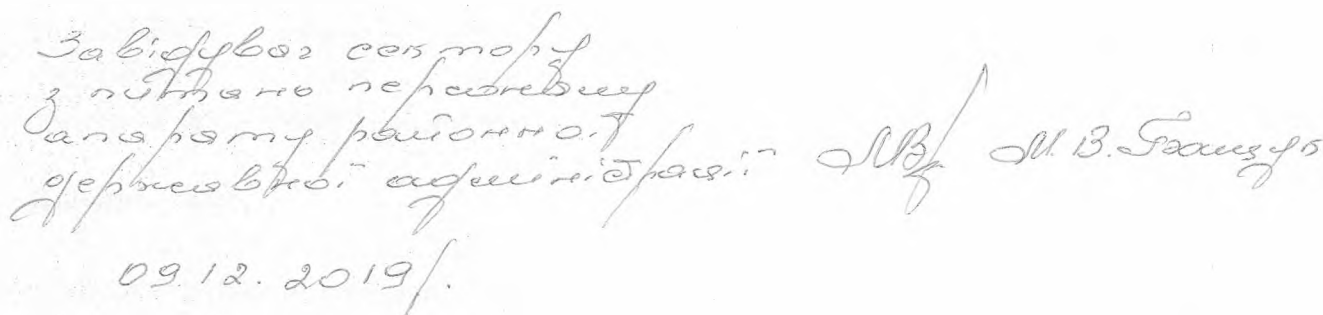 Завідувач сектору
з питань персоналу
апарату районної
державної адміністрації М.В.
09.12.2019р.